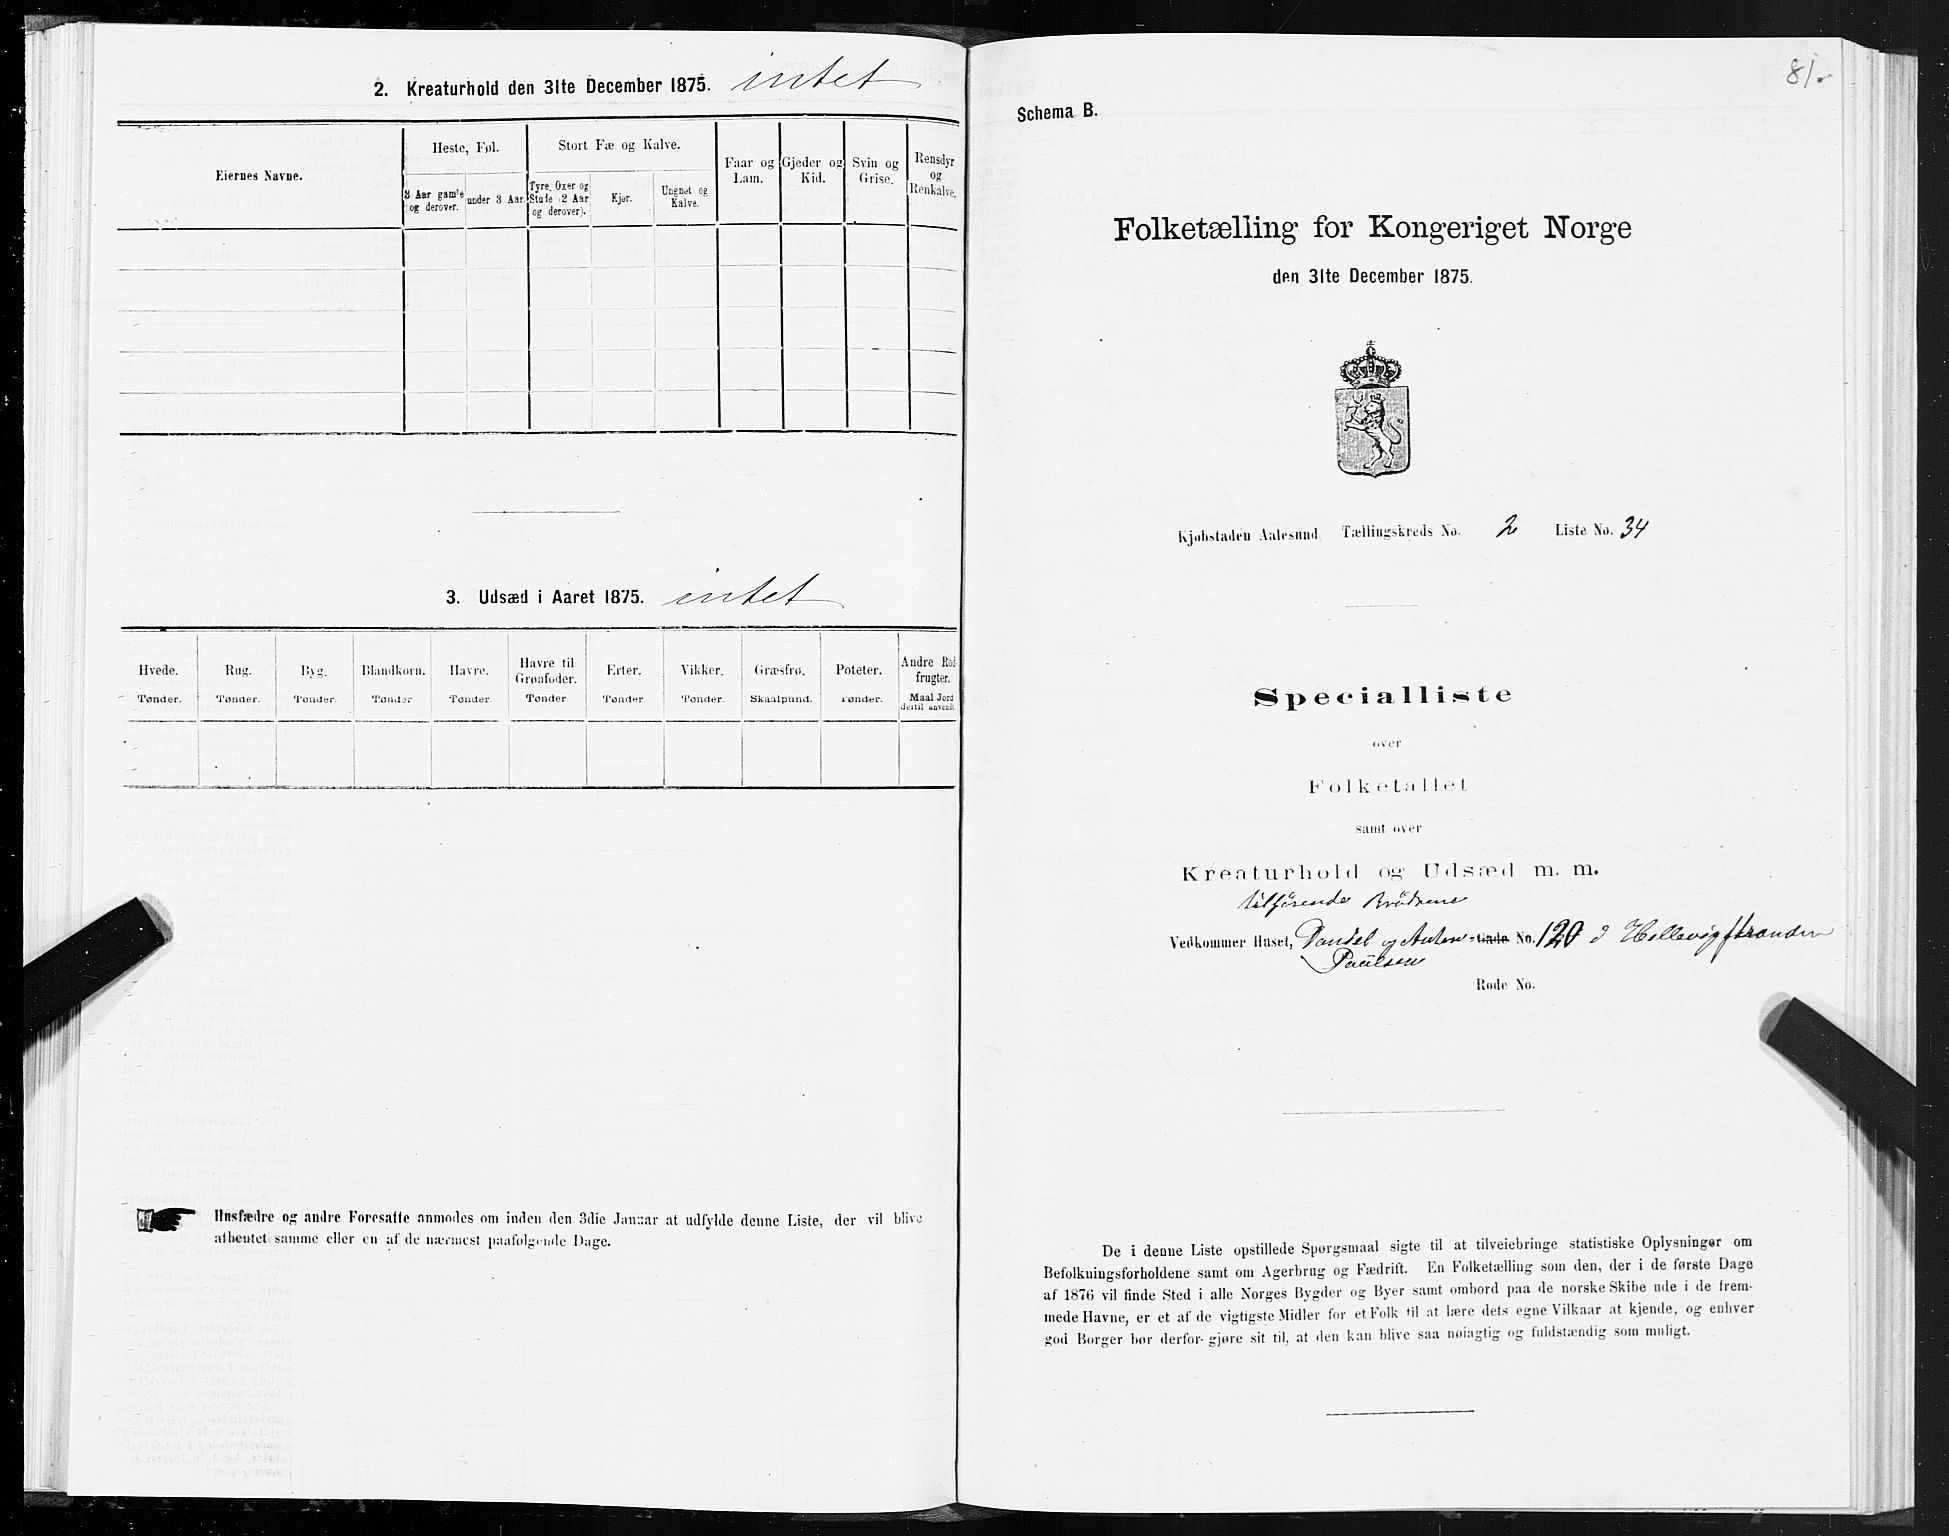 2. Kreaturhold den 31te December 1875. intet
Eiernes Navne.
Heste, Føl.
3 Aar gamle og derover.
under 3 Aar.
Stort Fæ og Kalve.
Tyre, Oxer og Stute (2 Aar og derover).
Kjør.
Ungnøt og Kalve.
Faar og Lam.
Gjeder og Kid.
Svin og Grise.
Rensdyr og Renkalve.
3. Udsæd i Aaret 1875. intet
Hvede. Tønder.
Rug. Tønder.
Byg. Tønder.
Blandkorn. Tønder
Havre. Tønder.
Havre til Grønfoder. Tønder.
Erter. Tønder.
Vikker. Tønder.
Græsfrø. Skaalpund.
Poteter. Tønder.
Andre Rodfrugter. Maal Jord dertil anvendt.
Husfædre og andre Foresatte anmodes om inden den 3die Januar at udfylde denne Liste, der vil blive
afhentet samme eller en af de nærmest paafølgende Dage.
81.
Schema B.
Folketælling for Kongeriget Norge
den 31te December 1875.
Kjøbstaden Aalesund. Tællingskreds No. 2 Liste No. 34
Specialliste
over
Folketallet
samt over
Kreaturhold og Udsæd m. m.
tilhørende Brødrene
Vedkommer Huset, Daniel og Anton -Gade No. 120 i Hellevigstranden
Paulsen
Rode No.
De i denne Liste opstillede Spørgsmaal sigte til at tilveiebringe statistiske Oplysninger om
Befolkningsforholdene samt om Agerbrug og Fædrift. En Folketælling som den, der i de første Dage
af 1876 vil finde Sted i alle Norges Bygder og Byer samt ombord paa de norske Skibe ude i de frem-
mede Havne, er et af de vigtigste Midler for et Folk til at lære dets egne Vilkaar at kjende, og enhver
god Borger bør derfor gjøre sit til, at den kan blive saa nøiagtig og fuldstændig som muligt.